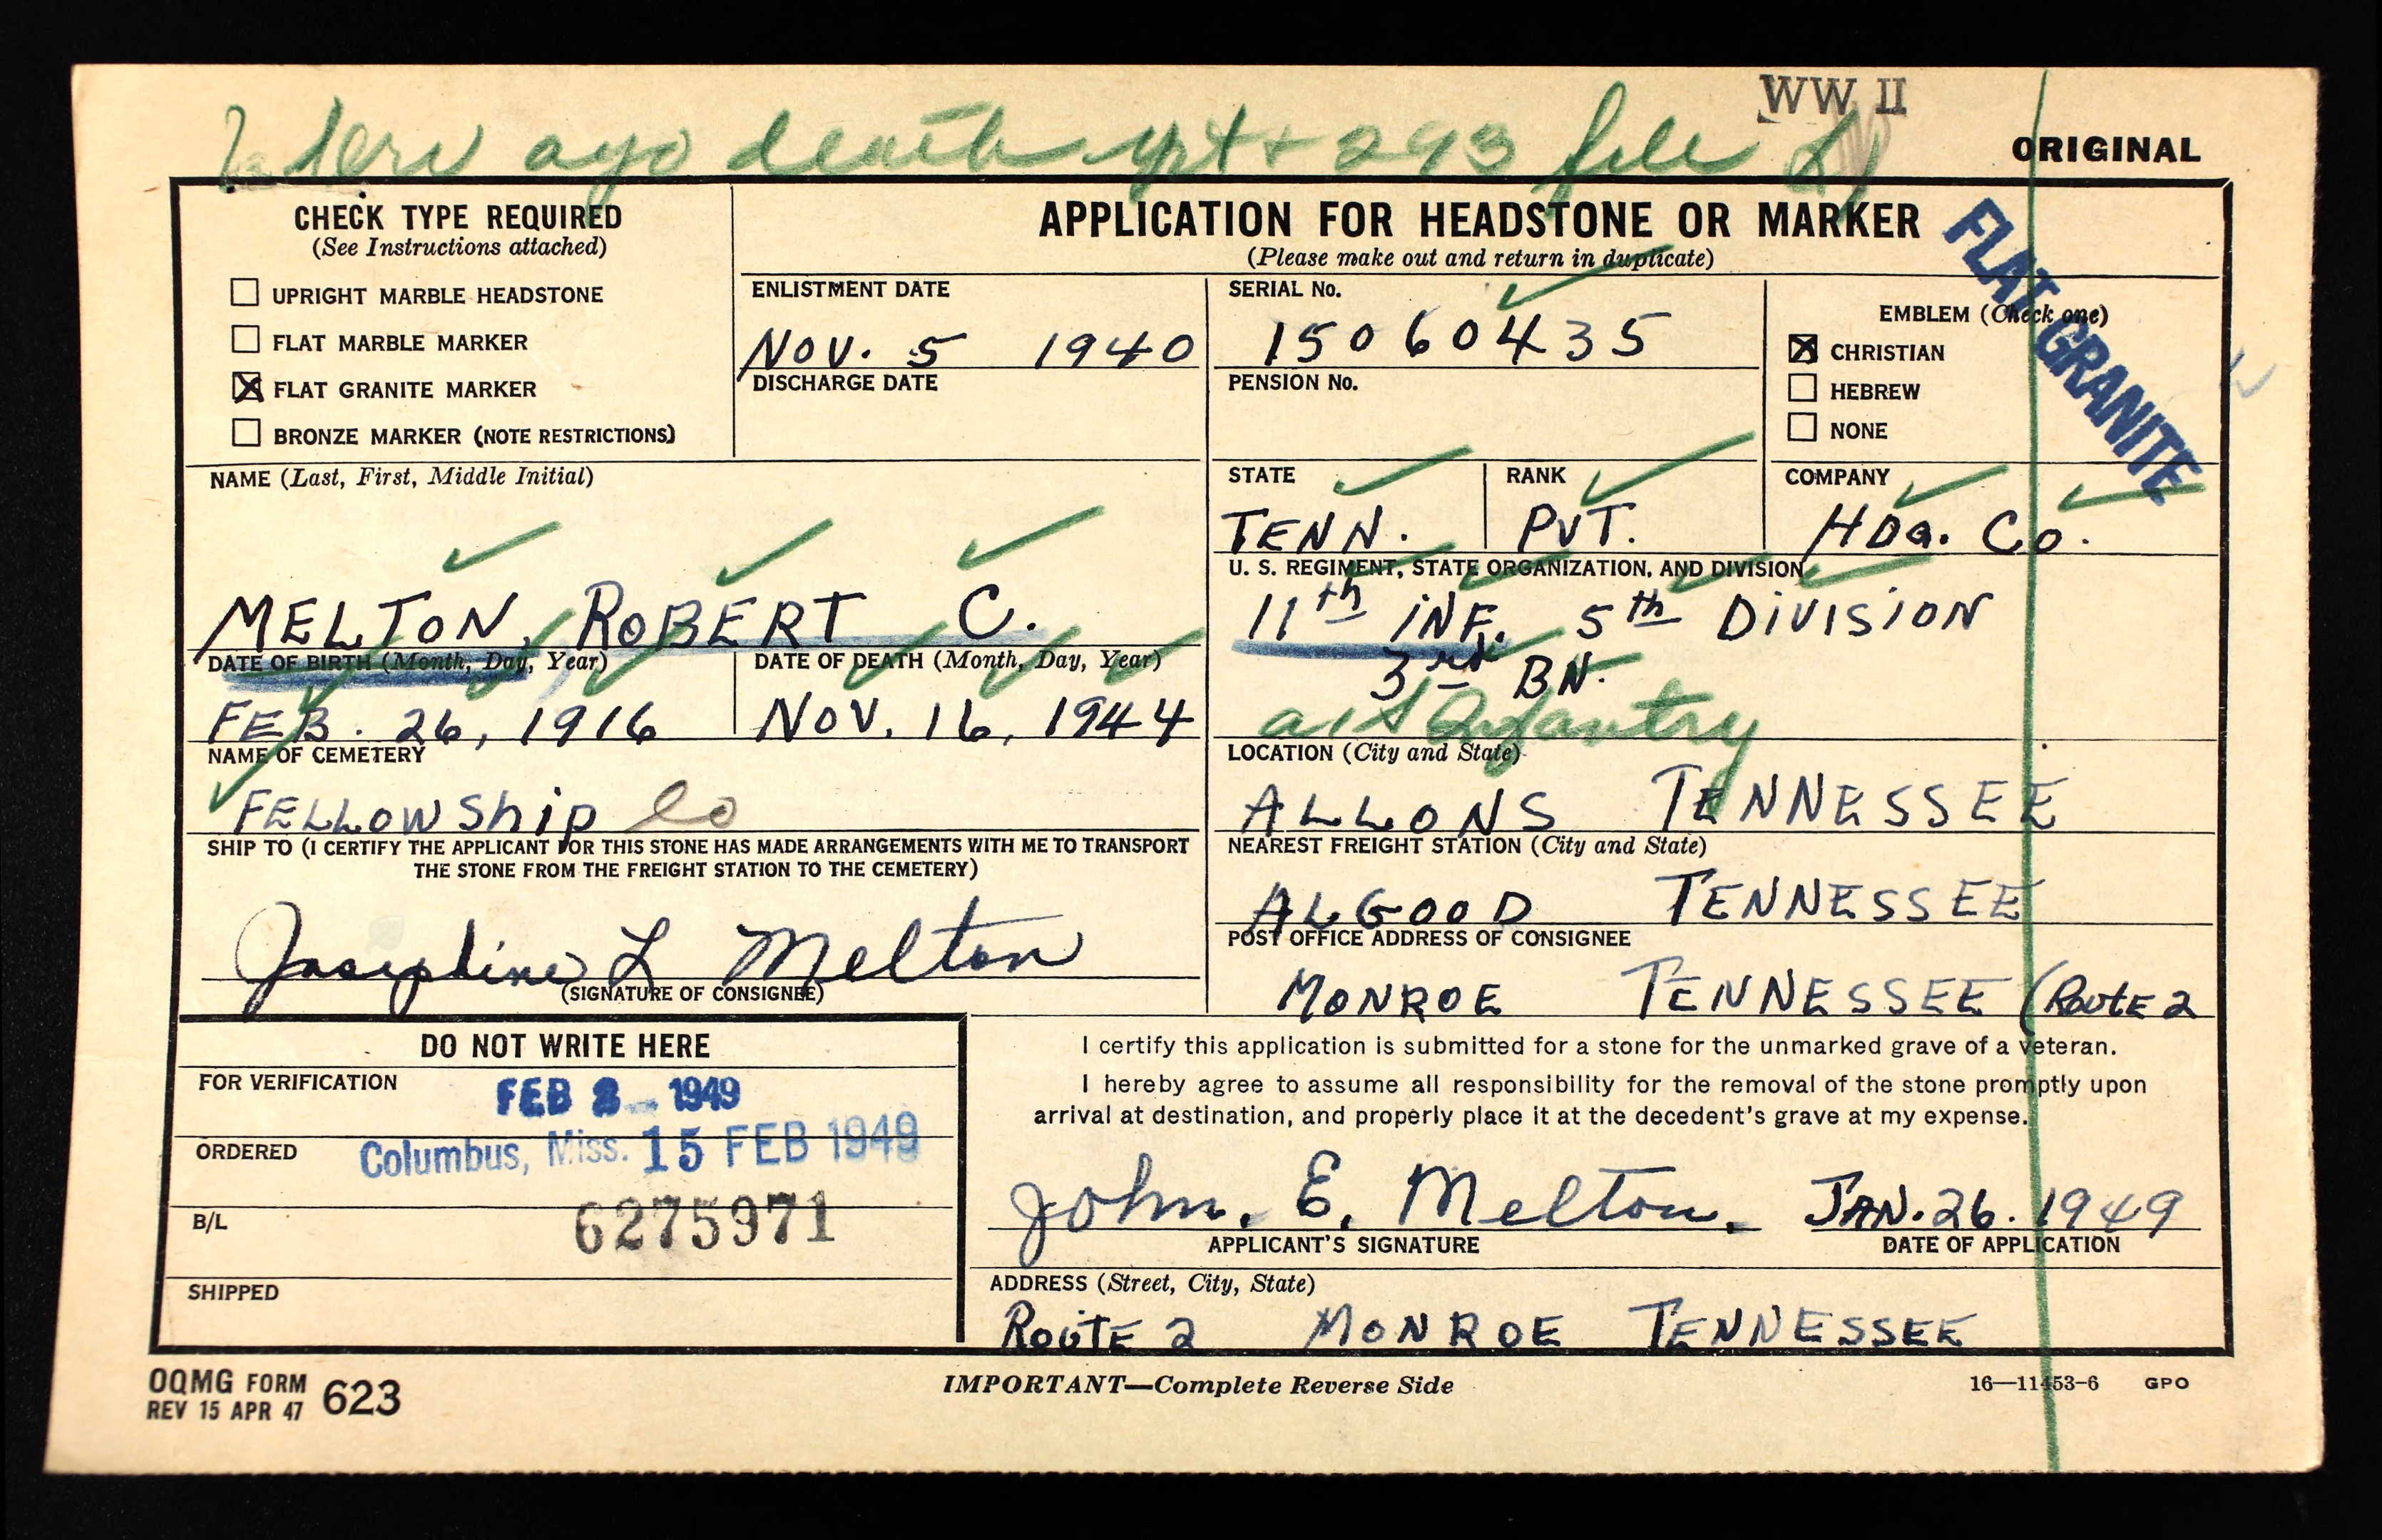 WW II
ago death rpt + 293 file
ORIGINAL
CHECK TYPE REQUIRED
(See Instructions attached)
UPRIGHT MARBLE HEADSTONE
FLAT MARBLE MARKER
FLAT GRANITE MARKER
BRONZE MARKER (NOTE RESTRICTIONS)
APPLICATION FOR HEADSTONE OR MARKER
(Please make out and return in duplicate)
FLAT GRANITE
ENLISTMENT DATE
NOV. 5 1940
DISCHARGE DATE
SERIAL No.
15060435
PENSION No.
EMBLEM (Check one)
CHRISTIAN
HEBREW
NONE
NAME (Last, First, Middle Initial)
MELTON, ROBERT C.
STATE
TENN.
RANK
PVT.
COMPANY
HDQ. Co.
U. S. REGIMENT, STATE ORGANIZATION, AND DIVISION
11th INF. 5th DIVISION
3rd BN.
Infantry
DATE OF BIRTH (Month, Day, Year)
FEB. 26, 1916
DATE OF DEATH (Month, Day, Year)
NOV. 16, 1944
NAME OF CEMETERY
FELLOWShip
LOCATION (City and State)
ALLONS TENNESSEE
SHIP TO (I CERTIFY THE APPLICANT FOR THIS STONE HAS MADE ARRANGEMENTS WITH ME TO TRANSPORT
THE STONE FROM THE FREIGHT STATION TO THE CEMETERY)
Josephine L Melton
(SIGNATURE OF CONSIGNEE)
NEAREST FREIGHT STATION (City and State)
ALGOOD TENNESSEE
POST OFFICE ADDRESS OF CONSIGNEE
MONROE TENNESSEE (ROUTE 2
DO NOT WRITE HERE
FOR VERIFICATION
FEB 2 1949
ORDERED
Columbus, Miss. 15 FEB 1949
B/L
6275971
SHIPPED
I certify this application is submitted for a stone for the unmarked grave of a veteran.
I hereby agree to assume all responsibility for the removal of the stone promptly upon
arrival at destination, and properly place it at the decedent's grave at my expense.
John. E. Melton. JAN. 26. 1949
APPLICANT'S SIGNATURE
DATE OF APPLICATION
ADDRESS (Street, City, State)
ROUTE 2 MONROE TENNESSEE
OQMG FORM 623
REV 15 APR 47
IMPORTANT—Complete Reverse Side
16—11453-6 GPO